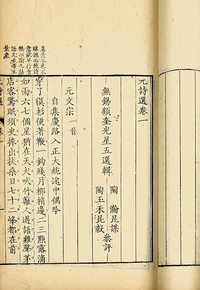 元詩選卷一
無錫顧奎光星五選輯
陶瀚昆謀
陶玉禾昆毅
叅評
元文宗一首
自集慶路入正大統途中偶吟
穿了氁衫便著鞭一鉤殘月柳梢邊二三點露滴
如雨六七個星猶在天犬吠竹籬人過語雞聲茅
店客驚眠須臾捧出扶桑日七十二峰都在前